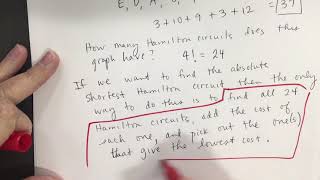 E, D, A, B, C, E
3+10+9+3+12 = 37
How many Hamilton circuits does this
graph have? 4! = 24
If we want to find the absolute
shortest Hamilton circuit then the only
way to do this is to find all 24
Hamilton circuits, add the cost of
each one, and pick out the one(s)
that give the lowest cost.